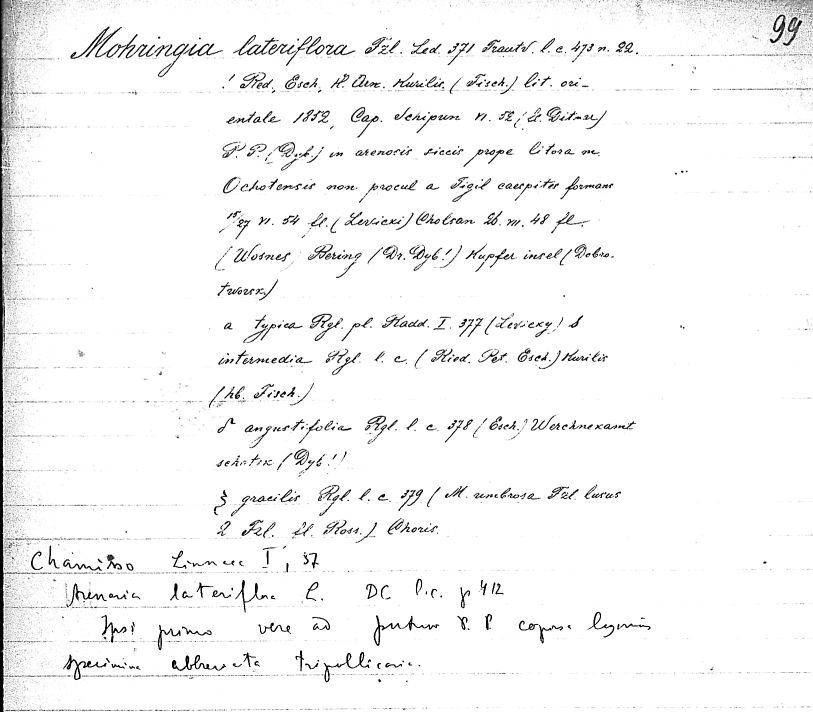 99
Mohringia lateriflora Fzl. Led. 371 Trautv. l. c. 473 n. 22.
! Red, Esch, Kurilis, (Fisch.) lit. ori-
entale 1852, Cap. Schipun n. 52 (Ditmar)
P. P. (Dyb.) in arenosis siccis prope litora m.
Ochotensis non procul a Tigil caespites formans
15/27 VI. 54 fl. (Levicki) Cholsan 26. m. 48 fl.
(Wosnes) Bering (Dr. Dyb!) Kupfer insel (Dobro-
tworsk)
a typica Rgl. pl. Radd. I. 377 (Levicky) b
intermedia Rgl. l. c. (Pet. Esch.) Kurilis
(hb. Fisch.)
δ angustifolia Rgl. l. c. 378 (Esch.) Werchnekamt
schatsk (Dyb!)
ξ gracilis Rgl. l. c. 379 (M. umbrosa Fzl. lusus
2 Fzl. fl. Ross.) Choris.
Chamisso Linnaea I, 57
Arenaria lateriflora L. DC l.c. p 412
Ipsi primo vere ad portum P. P. copiose legimus
specimina abbreviata tripollicaria.